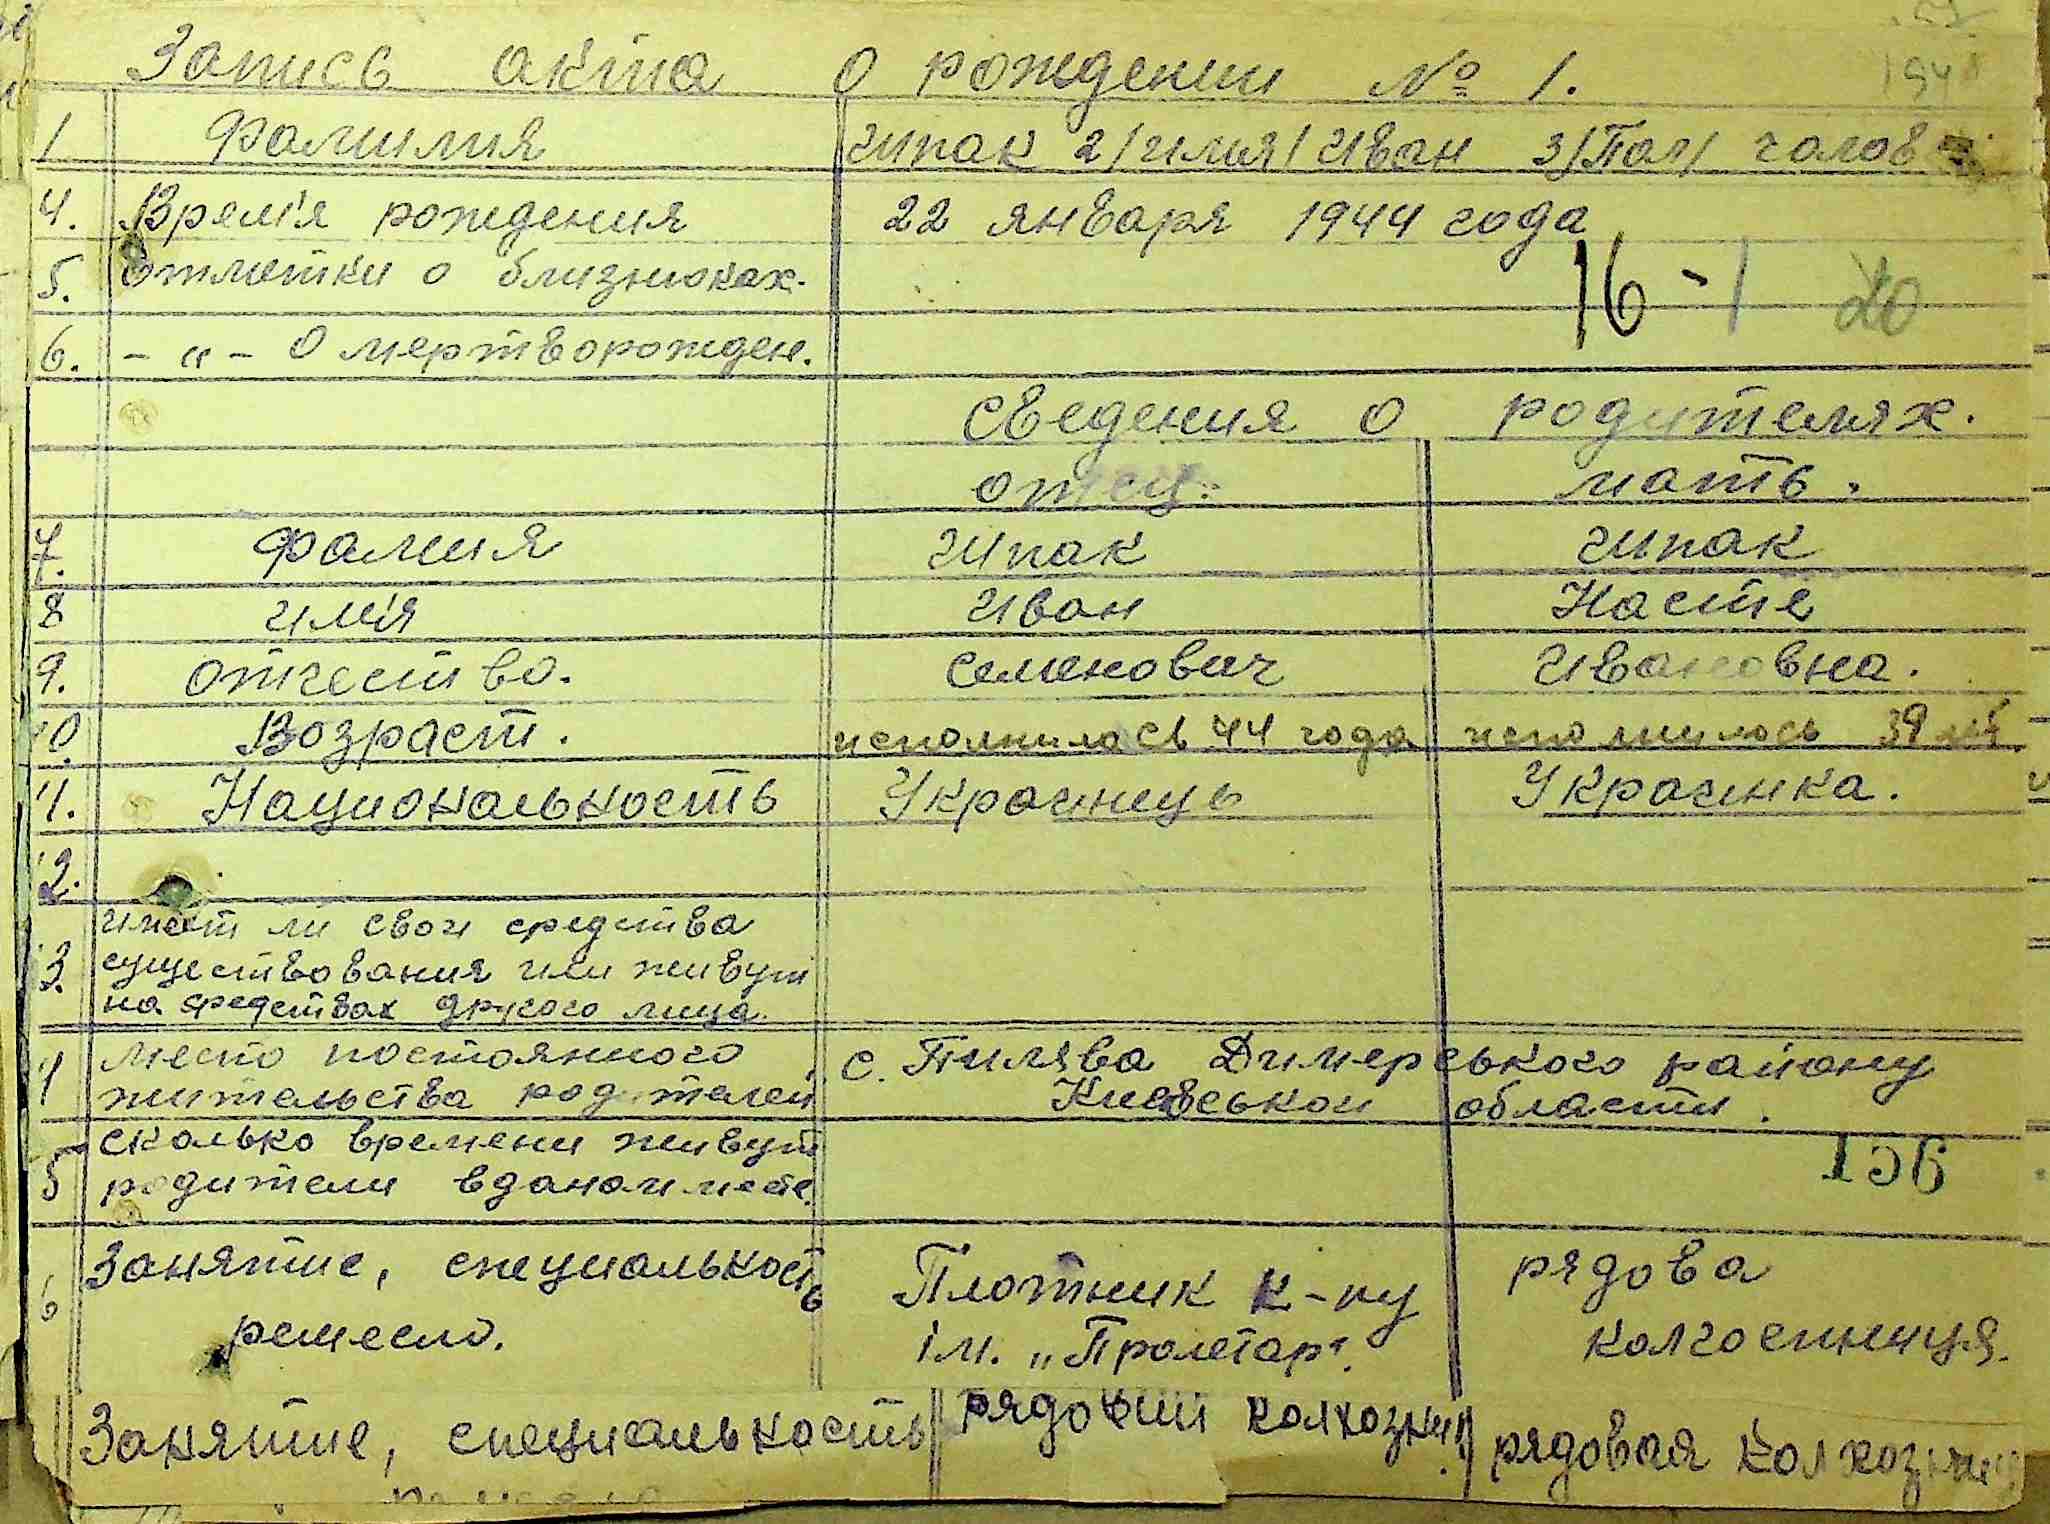 Запись акта о рождении № 1.
1 Фамилия Шпак 2/имя/ Иван 3/Пол/ чолов
4. Врем'я рождения 22 января 1944 года
5. Отметки о близнюках. 16-1 20
6. - " - О мертворожден.
Сведения о родителях.
отец. мать.
7. Фамия Шпак Шпак
8 им'я Иван Настя
9. отчество. Семенович Ивановна.
10. Возраст. исполнилось 44 года исполнилось 39
11. Национальность Украинець Украинка.
12.
имеет ли свои средства
13. существования или живут
на средствах другого лица.
место постоянного с. Пилява Димерського району
жительства родителей Киевськои области.
сколько времени живут 156
5 родители в даном месте.
Занятие, специальность Плотник к-пу рядова
6 ремесло. ім. „Пролетар". колгоспниця.
Занятие, специальность рядовий рядовая